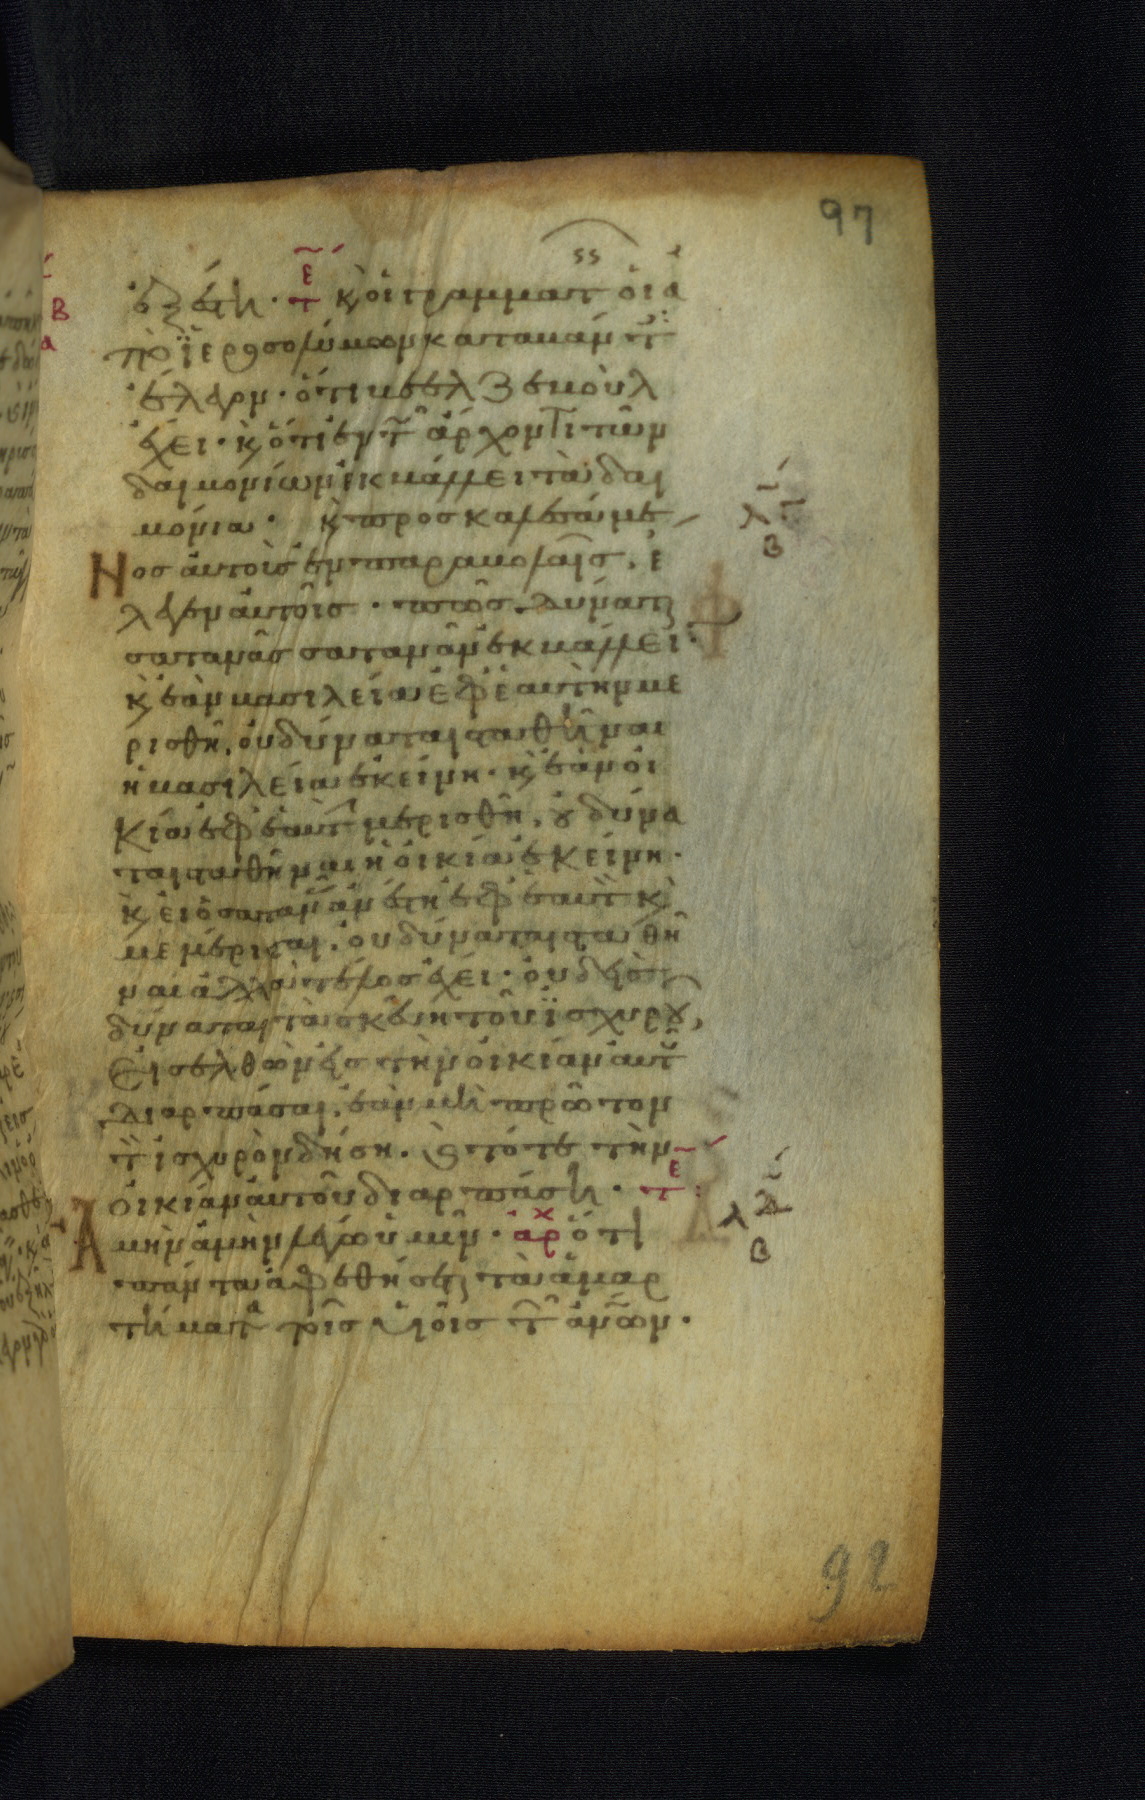 97
ἐξέστη · τε κ οἱ γραμματ οἱ ἀ
πὸ ἱεροσολύμων καταβάντ
ἔλεγον · ὅτι βεελζεβοὺλ
ἔχει · κ ὅτι ἐν τ ἄρχοντι τῶν
δαιμονίων ἐκβάλλει τὰ δαι
μόνια · κ προσκαλεσάμε
Νος αὐτοὺς ἐν παραβολαῖς, ἔ
λεγεν αὐτοῖς · πῶς δύναται
σατανᾶς σατανᾶν ἐκβάλλει·
κ ἐὰν βασιλεία ἐφ ἑαυτὴν με
ρισθῆ, οὐ δύναται σταθῆναι
ἡ βασιλεία ἐκείνη · κ ἐὰν οἰ
κία ἐφ ἑαυτ μερισθῆ, οὐ δύνα
ται σταθῆναι ἡ οἰκία ἐκείνη ·
κ εἰ ὁ σαταν ἀνέστη ἐφ ἑαυτ κ
μεμέρισται · οὐ δύναται σταθῆ
ναι ἀλλὰ τέλος ἔχει · οὐδεὶς
δύναται τὰ σκεύη τοῦ ἰσχυροῦ,
Εἰσελθὼν εἰς τὴν οἰκίαν αὐτοῦ
διαρπάσαι, ἐὰν μὴ πρῶτον
τ ἰσχυρὸν δήση · κ τότε τὴν
οἰκίαν αὐτοῦ διαρπάση · τε
Ἀμὴν ἀμὴν λέγω ὑμῖν · ἀρχ ὅτι
πάντα ἀφεθήσεται τὰ ἁμαρ
τήματα τοῖς υἱοῖς τ ἀνων ·
92